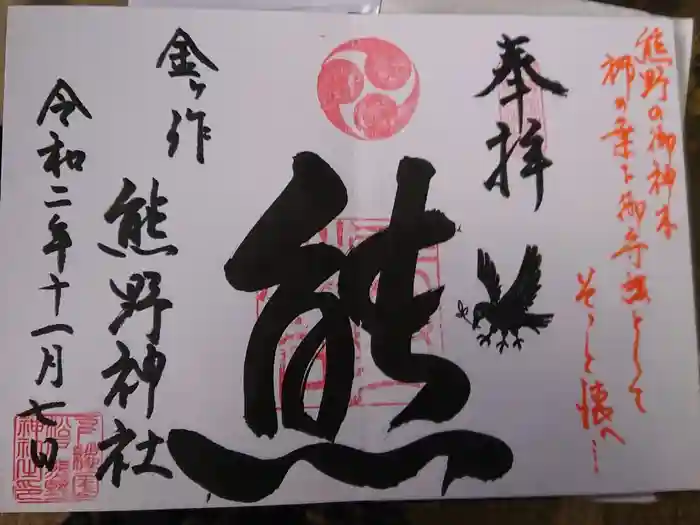 熊野の御神木
梛の葉を御守護として
そっと懐へ…
奉拝
熊
金ヶ作
熊野神社
令和二年十一月七日